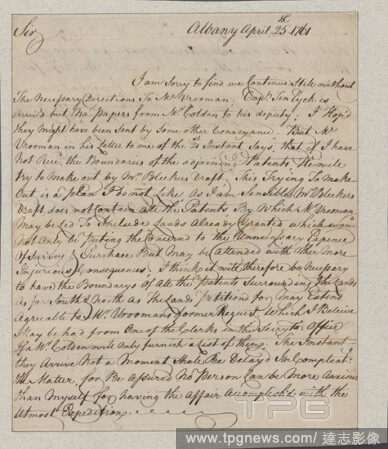 Sir Albany April 25th. 1761
I am Sorry to find we Continue Still without
The Necessary Directions To Mr Vrooman; Capt. Ten Eyck is
arriv'd but No Papers from Mr Colden to his deputy; I Hop'd
they might have been Sent by Some other Conveyance. But Mr
Vrooman in his Letter to one of the Instant Says, that if I have
Not Recd. the Boundaries of the adjoining Patents He will
try to Make out by Mr Bleekers Draft. This Trying To Make
Out is a plan I do not Like As I am Sensible Mr Bleekers
Draft does not Contain all the Patents, By Which Mr Vrooman
May be led To Include Lands Already Granted which would
Not Only be putting the Concern'd to the Unnecessary Expence
of Survey & Purchase But May be attended with other More
Injurious Consequences. I think it will therefore be Necessary
to have the Boundarys of all the Patents Surrounding the Lands
as far South & North as the Lands Petition'd for, may Extend
Agreeable to Mr Vroomans former Request, Which I Beleive
May be had from One of the Clerks in the Secrys. Office
if Mr Colden will Only furnish a List of them. The Instant
they Arrive Not a Moment Shall Be Delay'd for Compleating
the Matter, for Be Assured No Person Can be More Anxious
than Myself for having the Affair Accomplish'd with the
Utmost Expedition
TPG
www.tpgnews.com/ 達志影像